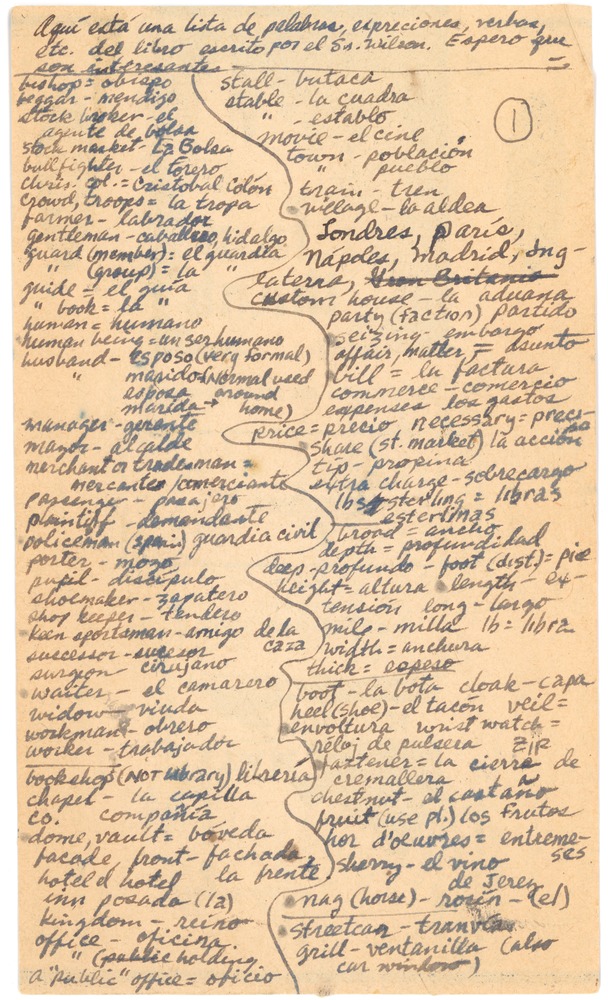 Aquí está una lista de palabras, expreciones, verbos,
etc. del libro escrito por el Sr. Wilson. Espero que
son interesantes
bishop = obispo
beggar - mendigo
stock broker - el
agente de bolsa
stock market - La Bolsa
bullfighter - el torero
Chris. Col. = Cristobal Colón
crowd, troops = la tropa
farmer - labrador
gentleman - caballero, hidalgo
guard (member) = el guardia
" (group) = la "
guide - el guía
" book = la "
human = humano
human being = un ser humano
husband - esposo (very formal)
" marido - (Normal used
esposa around
marida → home)
manager - gerente
mayor - alcalde
merchant or tradesman =
mercante / comerciante
passenger - pasajero
plaintiff - demandante
policeman (spain) guardia civil
porter - mozo
pupil - discípulo
shoemaker - zapatero
shop keeper - tendero
keen sportsman - amigo de la
caza
successor - sucesor
surgeon cirujano
waiter - el camarero
widow - viuda
workman - obrero
worker - trabajador
bookshop (not library) librería
chapel - la capilla
co. compañía
dome, vault = bóveda
facade, front - fachada,
la frente
hotel el hotel
inn posada (la)
kingdom - reino
office - oficina
" (public holding
a "public" office = oficio
1
stall - butaca
stable - la cuadra
" - establo
movie - el cine
town - población
" pueblo
train - tren
village - la aldea
Londres, París,
Nápoles, Madrid, Ing-
laterra, Gran Britania
custom house - la aduana
party (faction) partido
seizing - embargo
affair, matter, = asunto
bill = la factura
commerce - comercio
expenses los gastos
price = precio, necessary = preci-
so
share (st. market) la acción
tip - propina
extra charge - sobrecargo
lbs sterling = libras
esterlinas
broad = ancho
depth = profundidad
deep - profundo - foot (dist.) = pie
height = altura length - ex-
tensión long - largo
mile - milla lb = libra
width = anchura
thick = espeso
boot - la bota cloak - capa
heel (shoe) - el tacon veil =
envoltura wrist watch =
reloj de pulsera zip
fastener = la cierre de
cremallera
chestnut - el castaño
fruit (use pl.) los frutos
hor d'oeuvres = entreme-
ses
sherry - el vino
de Jerez
nag (horse) - rosin - (el)
streetcar - tranvía
grill - ventanilla (also
car window)